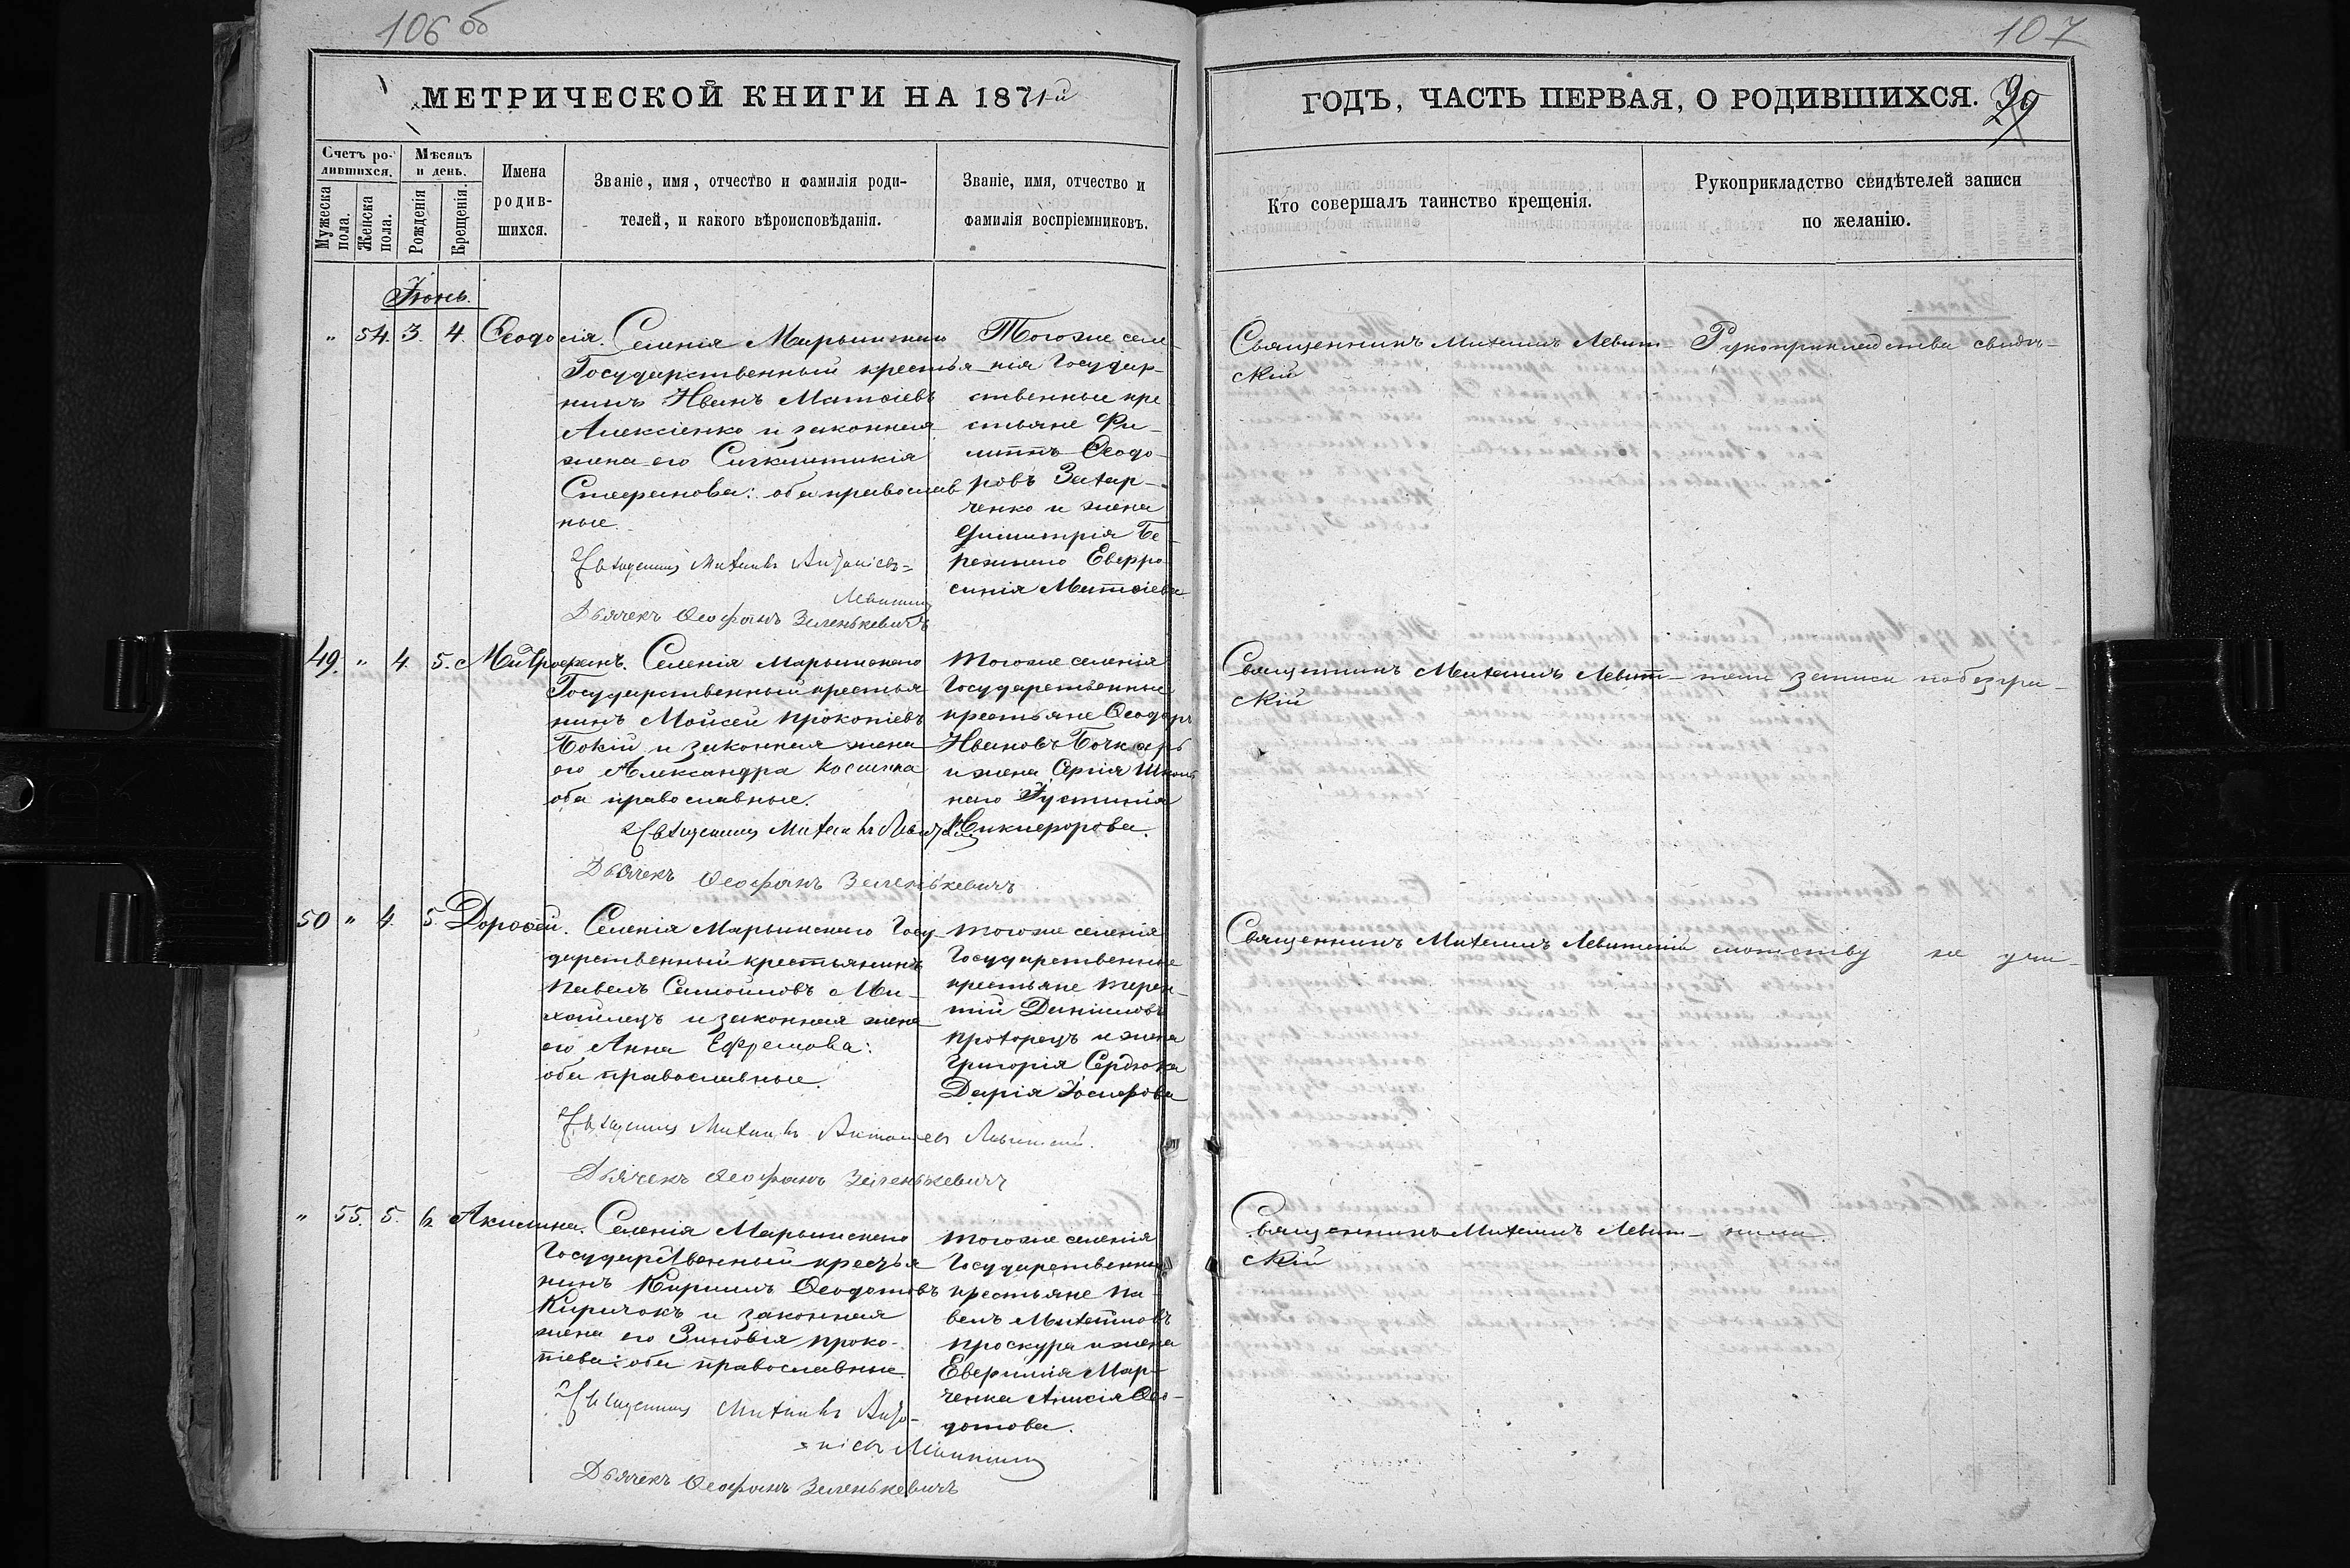 106 об
107
МЕТРИЧЕСКОЙ КНИГИ НА 1871-й
ГОДЪ, ЧАСТЬ ПЕРВАЯ, О РОДИВШИХСЯ.
Счетъ ро-
дившихся.
Мужеска
пола.
Женска
пола.
Мѣсяцъ
и день.
Рожденія
Крещенія.
Имена
родив-
шихся.
Званіе, имя, отчество и фамилія роди-
телей, и какого вѣроисповѣданія.
Званіе, имя, отчество и
фамилія воспріемниковъ.
Кто совершалъ таинство крещенія.
Рукоприкладство свидѣтелей записи
по желанію.
Іюнь.
" 54. 3. 4. Ѳеодосія.
Селенія Марьинскаго
Государственный крестья-
нинъ Иванъ Матѳіевъ
Алексіенко и законная
жена его Сигклитикія
Стефанова: оба православ
ные.
Священникъ Михаилъ Антоніевъ=
Левитскій
Дьячекъ Ѳеофанъ Зеленькевичъ
Тогоже селе-
нія Государ-
ственные кре
стьяне Фи-
липпъ Ѳеодо-
ровъ Захар-
ченко и жена
Димитрія Бе-
режнаго Евфро
синія Матѳіева
Священникъ Михаилъ Левит-
скій
Рукоприкладства свидѣ-
49. " 4. 5. Митрофанъ.
Селенія Марьинскаго
Государственный крестья
нинъ Мойсей Прокопіевъ
Бокій и законная жена
его Александра Космина
оба православные.
Священникъ Михаилъ Левитскій
Дьячекъ Ѳеофанъ Зеленькевичъ
Тогоже селенія
Государственные
крестьяне Ѳеодоръ
Ивановъ Бочкарь
и жена Сергія
наго Іустинія
Никифорова.
Священникъ Михаилъ Левит-
скій
тели записи по безгра-
50 " 4. 5. Дороѳей.
Селенія Марьинскаго Госу-
дарственный крестьянинъ
Павелъ Самойловъ Ми-
хайлецъ и законная жена
его Анна Ефремова:
оба православные.
Священникъ Михаилъ Антоніевъ Левитскій.
Дьячекъ Ѳеофанъ Зеленькевичъ
Тогоже селенія
Государственные
крестьяне Терен-
тій Даніиловъ
Прохорецъ и жена
Григорія Сердюка
Дарія Іосифова
Священникъ Михаилъ Левитскій
мотству не учи-
" 55. 5. 6. Акилина.
Селенія Марьинскаго
Государственный крестья
нинъ Кириллъ Ѳеодотовъ
Киричокъ и законная
жена его Зиновія Проко-
піева: оба православные.
Священникъ Михаилъ Анто-
=ніевъ Левитскій
Дьячекъ Ѳеофанъ Зеленькевичъ
Тогоже селенія
Государственные
крестьяне Па-
велъ Михайловъ
Проскура и жена
Евфимія Мар-
ченка Анисія Ѳео-
дотова.
Священникъ Михаилъ Левит-
скій
нили.